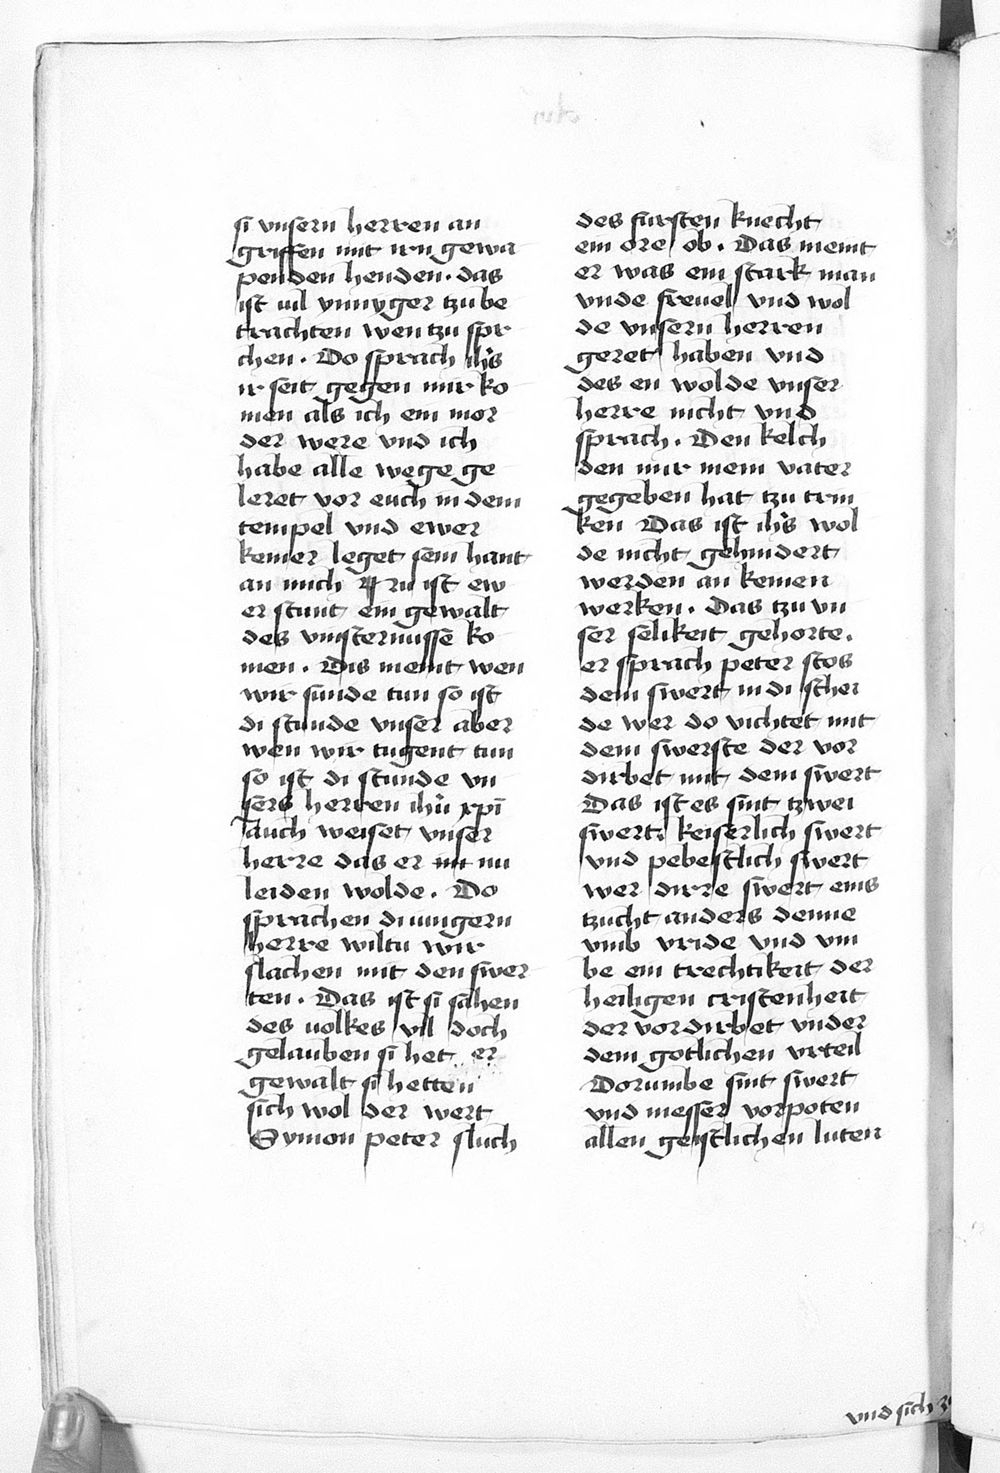 si vnsern herren an
griffen mit irn gewa
penden henden. das
ist uil ynnyger tzu be
trachten wen tzu spr
chen. Do sprach ihs
ir seit gegen mir ko
men als ich ein mor
der were vnd ich
habe alle wege ge
leret vor euch in dem
tempel vnd ewer
keiner leget sein hant
an mich ist ew
er stunt ein gewalt
des vinsternusse ko
men. Dis meint wen
wir sunde tun so ist
di stunde vnser aber
wen wir tugent tun
so ist di stunde vn
sers herren ihu xpi
auch weiset vnser
herre das er nu
leiden wolde. Do
sprachen di iungern
herre wiltu wir
slachen mit den swer
ten. Das ist si sahen
des uolkes vil doch
gelauben si het er
gewalt si hetten
sich wol der wert
Symon peter sluch
des fursten knecht
ein ore ob. Das meint
er was ein stark man
vnde freuel vnd wol
de vnsern herren
geret haben vnd
des en wolde vnser
herre nicht vnd
sprach. Den kelch
den mir mein vater
gegeben hat tzu trin
ken Das ist ihs wol
de nicht gehindert
werden an keinen
werken. Das tzu vn
ser selikeit gehorte.
er sprach peter stos
dem swert in di schei
de wer do vichtet mit
dem swerste der vor
dirbet mit dem swert
Das ist es sint tzwei
swert keiserlich swert
vnd pebestlich swert
wer dirre swert eins
tzucht anders denne
vmb vride vnd vm
be ein trechtikeit der
heiligen cristenheit
der vordirbet vnder
dem gotlichen vrteil
Dorumbe sint swert
vnd messer vorpoten
allen geistlichen luten
vnd sich